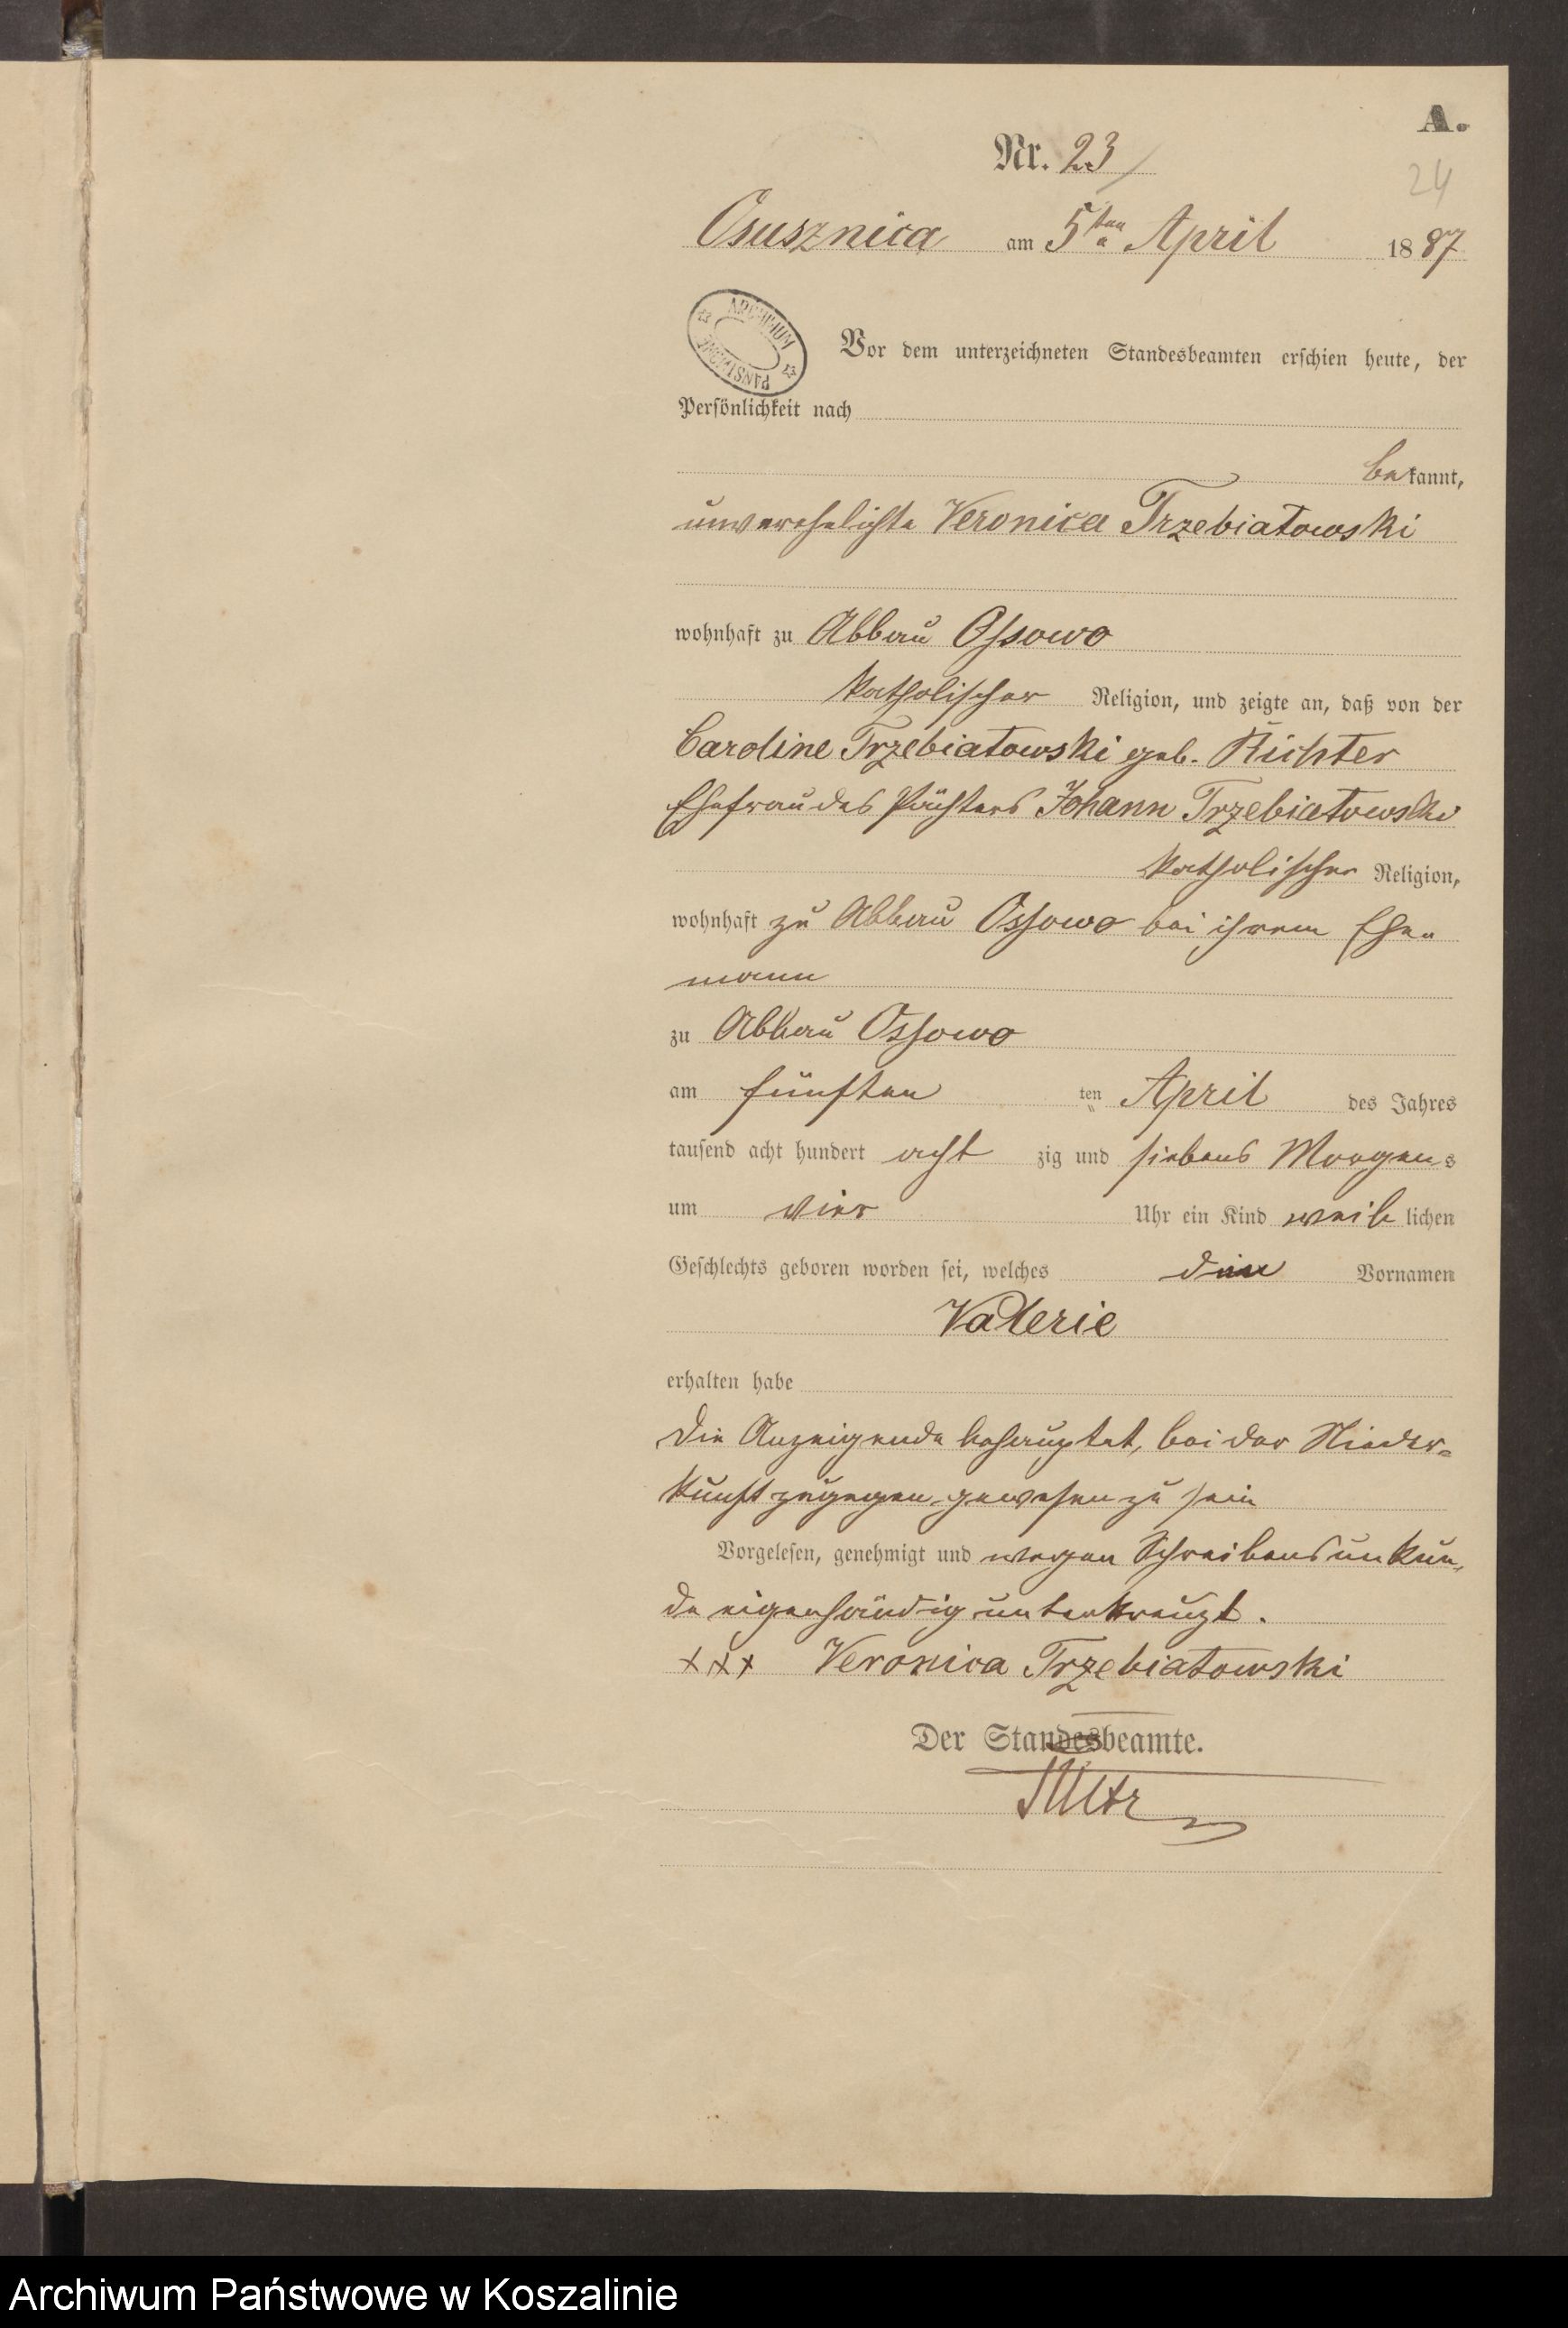 A.
Nr. 23
24
Osusznica am 5ten April 1887
ARCHIWUM PAŃSTWOWE
Vor dem unterzeichneten Standesbeamten erschien heute, der
Persönlichkeit nach
bekannt,
unverehelichte Veronica Trzebiatowski
wohnhaft zu Abbau Ossowo
katholischer Religion, und zeigte an, daß von der
Caroline Trzebiatowski geb. Richter
Ehefrau des Pächters Johann Trzebiatowski
katholischer Religion,
wohnhaft zu Abbau Ossowo bei ihrem Ehe-
mann
zu Abbau Ossowo
am fünften ten April des Jahres
tausend acht hundert acht zig und siebens Morgens
um vier Uhr ein Kind weiblichen
Geschlechts geboren worden sei, welches den Vornamen
Valerie
erhalten habe
Die Anzeigende behauptet, bei der Nieder-
kunft zugegen gewesen zu sein
Vorgelesen, genehmigt und wegen Schreibensunkun-
de eigenhändig unterkreuzt.
+++ Veronica Trzebiatowski
Der Standesbeamte.
Archiwum Państwowe w Koszalinie